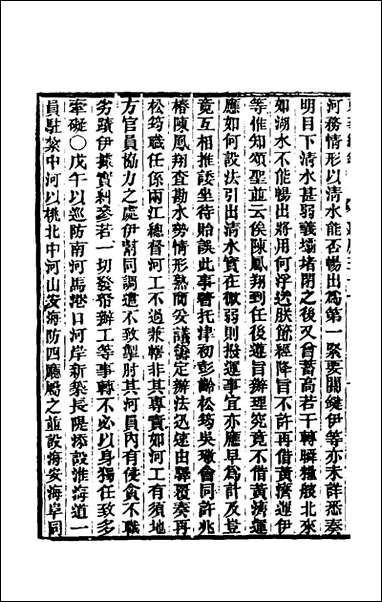 河務情形以清水能否暢出爲第一緊要關鍵伊等亦未詳悉奏
明目下清水甚弱義壩堵閉之後又曾蓄高若干轉瞬糧艘北來
如湖水不能暢出將用何浮送朕節經降旨不許再借黃濟運伊
等惟知頌聖並云俟陳鳳翔到任後遵旨辦理究竟不借黃濟運
應如何設法引出清水實在微弱則撥運事宜亦應早爲計及豈
竟互相推諉坐待貽誤此事著托津初彭齡松筠吳璥會同許兆
椿陳鳳翔查勘水勢情形熟商妥議籌定辦法迅速由驛覆奏再
松筠職任係兩江總督河工不過兼轄非其專責如河工有須地
方官員協力之處伊幫同調遣不致掣肘其河員內有侵貪不職
劣蹟伊據實糾參若一切發帑辦工等事轉不必以身獨任致多
牽礙〇戊午以巡防南河馬港口河岸新築長隄添設淮海道一
員駐紮中河以桃北中河山安海防四廳屬之並設海安海阜同